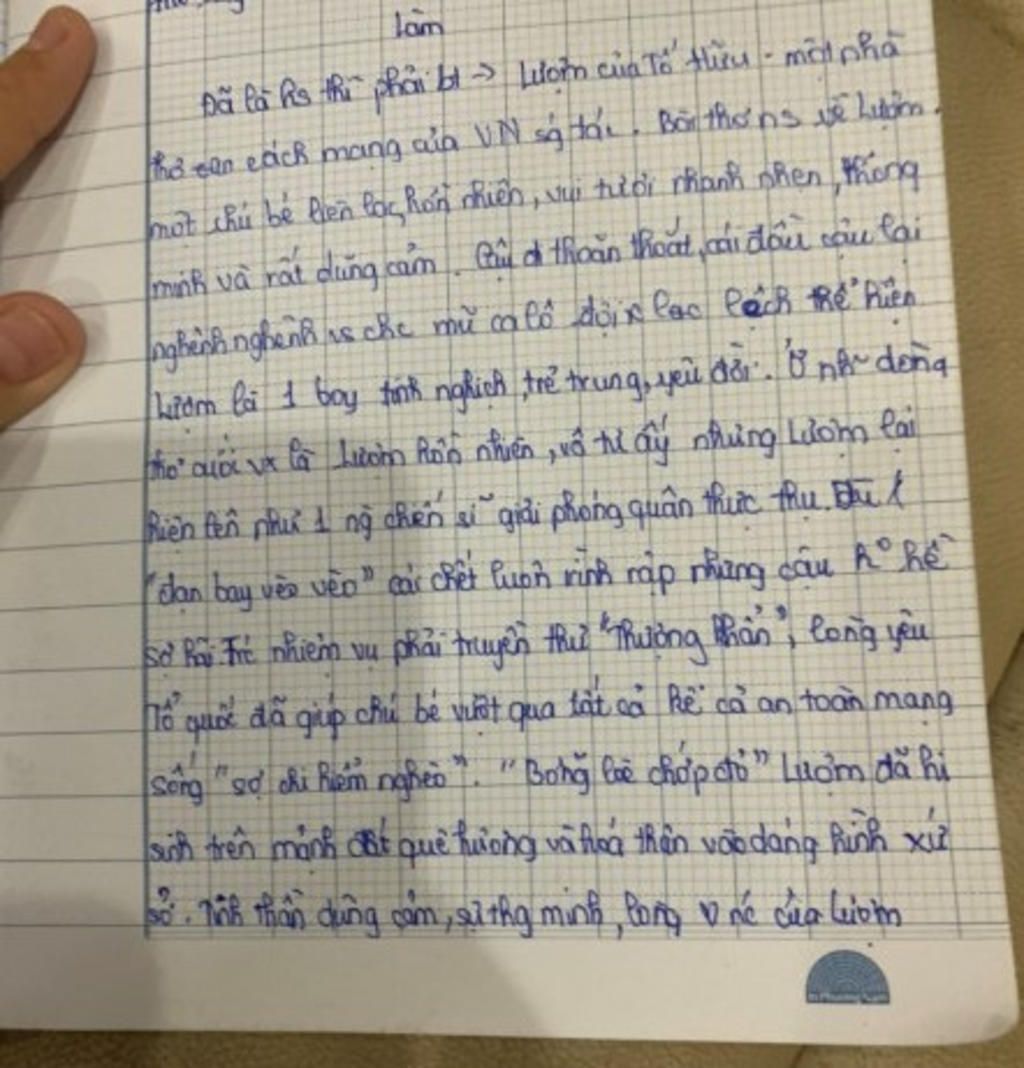 làm
Đã là hs thì phải bt → Lượm của Tố Hữu - một nhà
thơ cách mạng của VN sg tác. Bài thơ ns về Lượm.
một chú bé liên lạc, hồn nhiên, vui tươi nhanh nhẹn, thông
minh và rất dũng cảm. thoăn thoắt, cái đầu cậu lại
nghênh nghênh vs chc mũ ca lô đội lệch thể hiện
Lượm là 1 boy tinh nghịch, trẻ trung, yêu đời. Ở nh~ dòng
thơ cuối vx là Lượm hồn nhiên, vô tư ấy nhưng Lượm lại
hiện lên như 1 ng chiến sĩ giải phóng quân thực thụ. Dù
"đạn bay vèo vèo" cái chết luôn rình rập nhưng cậu ko hề
sợ hãi. nhiệm vụ phải truyền thư "Thượng khẩn", lòng yêu
Tổ quốc đã giúp chú bé vượt qua tất cả kể cả an toàn mạng
sống "sợ chi hiểm nghèo". "Bỗng loè chớp đỏ" Lượm đã hi
sinh trên mảnh đất quê hương và hoá thân vào dáng hình xứ
sở. Tinh thần dũng cảm, sự thg minh, lòng của Lượm